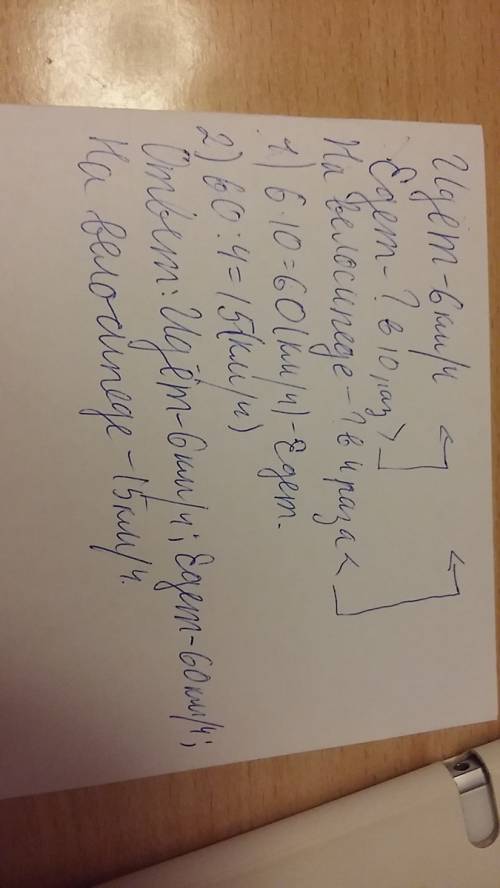 Идёт - 6 км/ч
Едет - ? в 10 раз >
На велосипеде - ? в 4 раза <
1) 6·10=60(км/ч) - Едет.
2) 60:4=15(км/ч)
Ответ: Идёт - 6 км/ч; Едет - 60 км/ч;
На велосипеде - 15 км/ч.